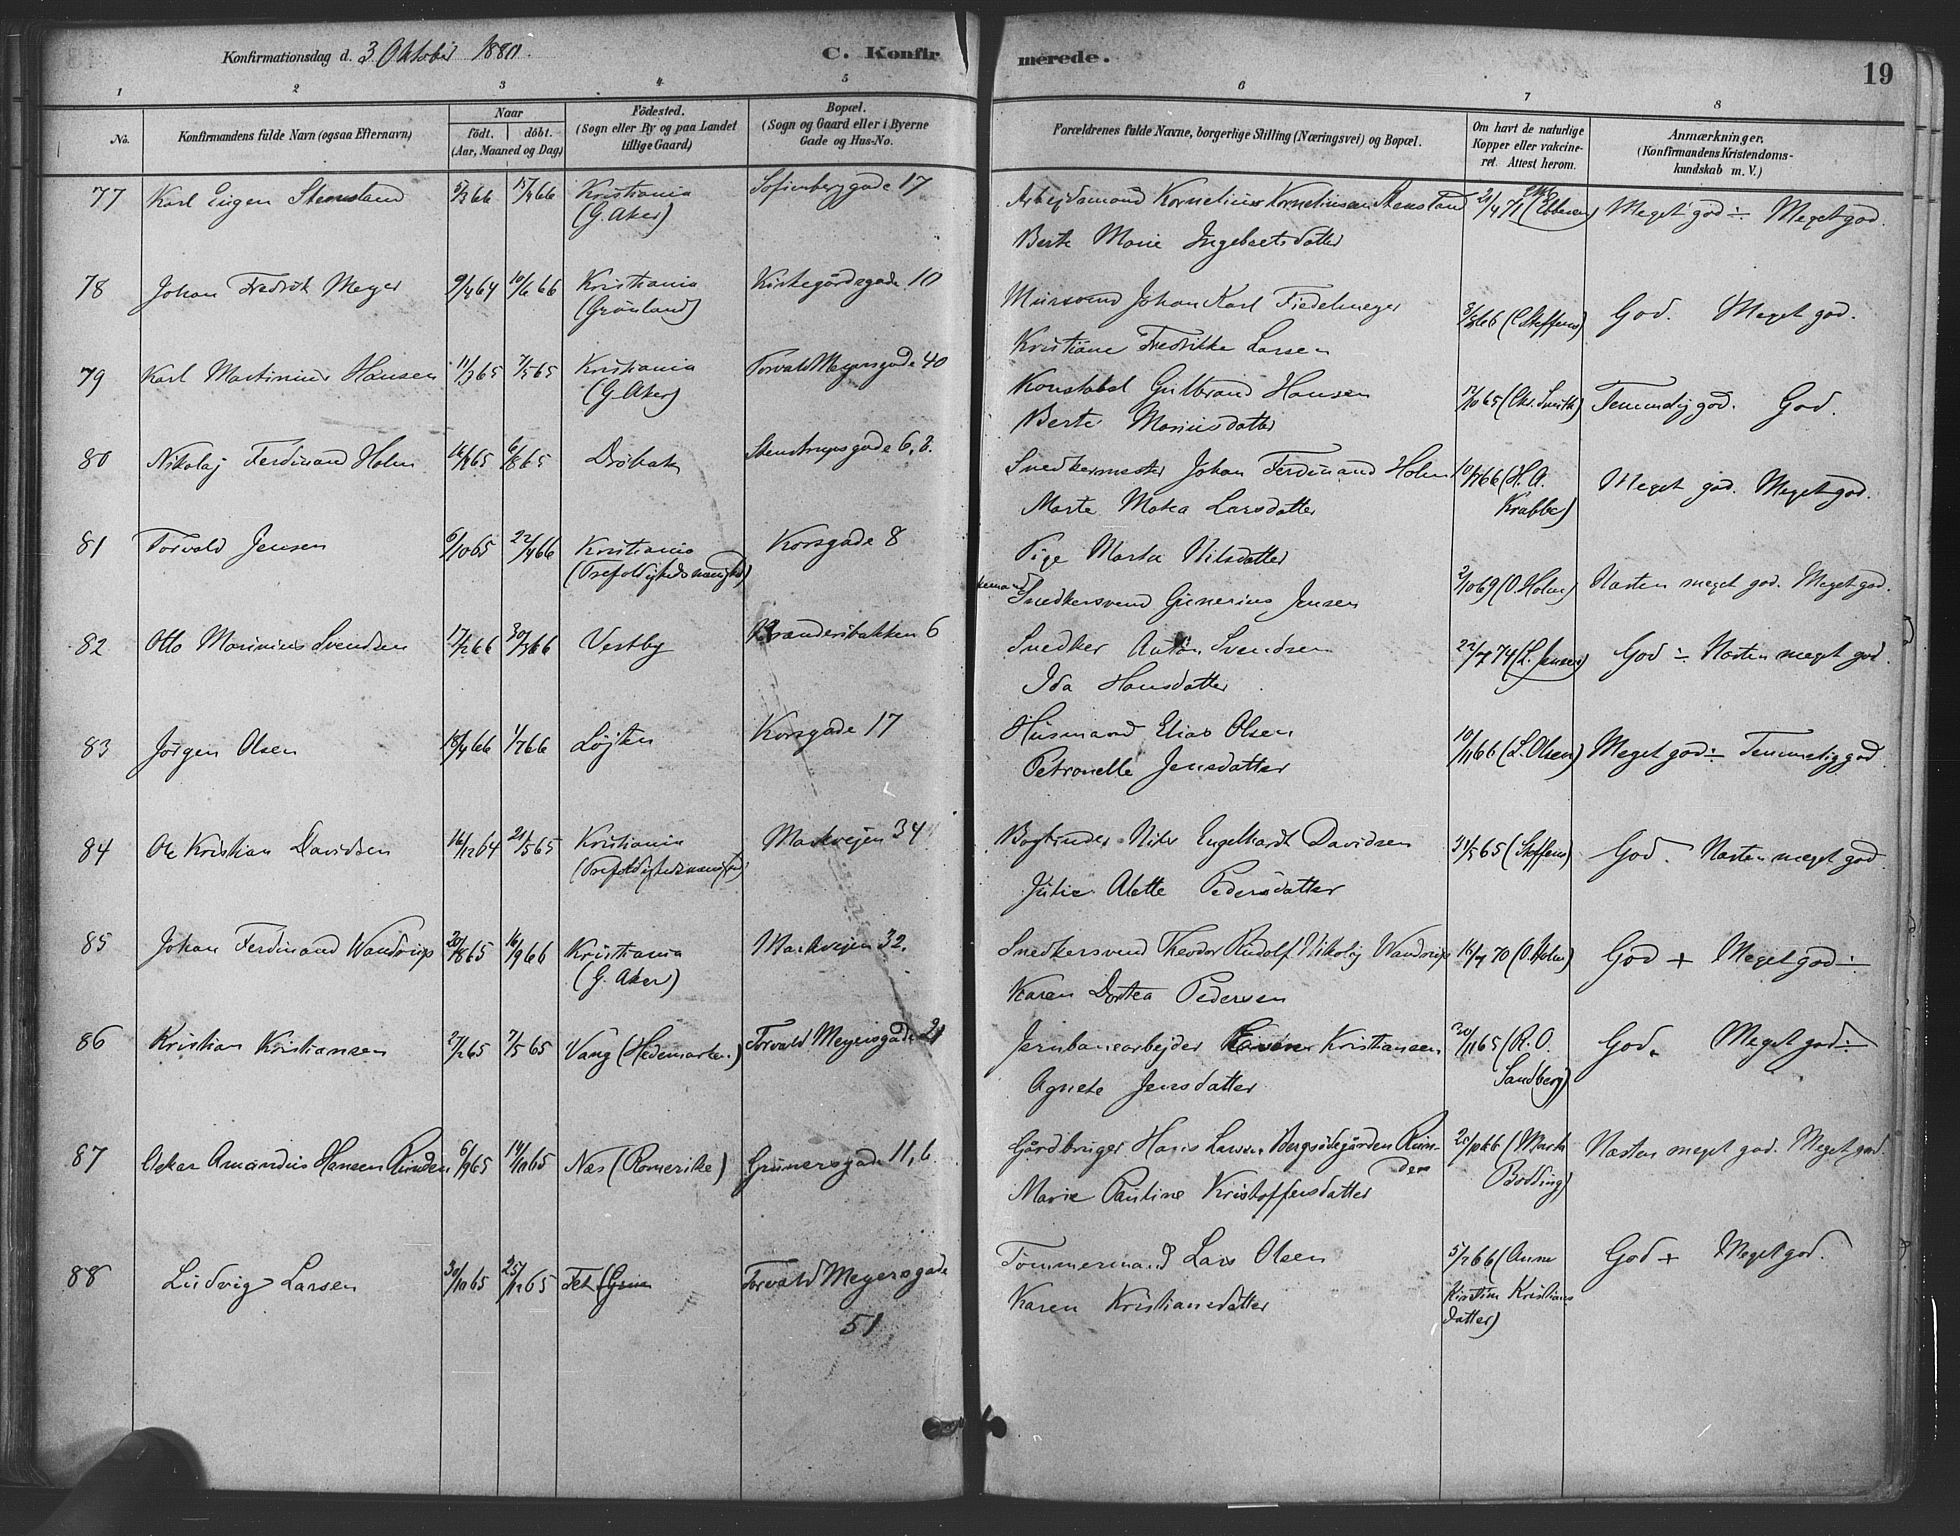 Konfirmationsdag d. 3 Oktober 1880.
C. Konfirmerede.
19
1 2 3 4 5 6 7 8
No.
Konfirmandens fulde Navn (ogsaa Efternavn)
Naar
födt. döbt.
(Aar, Maaned og Dag)
Födested.
(Sogn eller By og paa Landet
tillige Gaard)
Bopæl.
(Sogn og Gaard eller i Byerne
Gade og Hus-No.
Forældrenes fulde Navne, borgerlige Stilling (Næringsvei) og Bopæl.
Om havt de naturlige
Kopper eller vakcine-
ret. Attest herom.
Anmærkninger.
(Konfirmandens Kristendoms-
kundskab m. V.)
77 Karl Eugen Stensland 5/3 66 15/4 66 Kristiania Sofienberggade 17 Arbejdsmand Kornelius Korneliussen Stensland 21/4 71 (Ebbesen) Meget god ÷ Meget god.
(G. Aker) Berte Marie Ingebretsdatter
78 Johan Fredrik Meyer 9/4 64 10/6 66 Kristiania Kirkegårdsgade 10 Mursvend Johan Karl Fiedelmeyer 3/8 66 (C. Steffens) God. Meget god.
(Grönland) Kristiane Fredrikke Larsen
79 Karl Martinius Hansen 11/3 65 7/5 65 Kristiania Torvald Meyersgade 40 Konstabel Gulbrand Hansen 12/10 65 (Chr. Smith) Temmelig god. God.
(G. Aker) Berte Mariusdatter
80 Nikolaj Ferdinand Holm 6/8 65 Dröbak Stenstrupsgade 6, 8. Snedkermester Johan Ferdinand Holm 10/7 66 (H. A. Meget god. Meget god.
Marte Matea Larsdatter Krabbe)
81 Torvald Jensen 6/10 65 22/4 66 Kristiania Korsgade 8 Pige Marta Nilsdatter
(Trefoldighedsmenighed) Snedkersvend Gunerius Jensen 2/10 69 (O. Holm) Næsten meget god. Meget god.
82 Otto Marinius Svendsen 17/2 66 30/3 66 Vestby Brænderibakken 6 Snedker Anton Svendsen 22/7 74 (L. Jensen) God ÷ Næsten meget god.
Ida Hansdatter
83 Jörgen Olsen 18/4 66 1/7 66 Löjten Korsgade 17 Husmand Elias Olsen 10/11 66 (L. Olsen) Meget god ÷ Temmelig god
Petronelle Jensdatter
84 Ole Kristian Davidsen 16/12 64 21/5 65 Kristiania Markvejen 34 Bogbinder Nils Engelhardt Davidsen 31/5 65 (Steffens) God. Næsten meget god
(Trefoldighedsmenighed) Julie Alette Pedersdatter
85 Johan Ferdinand Wandrup 20/8 65 16/9 66 Kristiania Markvejen 32. Snedkersvend Theodor Rudolf Nikolaj Wandrup 15/7 70 (O. Holm) God + Meget god ÷
(G. Aker) Karen Dortea Pedersen
86 Kristian Kristiansen 27/2 65 7/5 65 Vang (Hedemarken) Torvald Meyersgade 21 Jernbanearbejder Even Kristiansen 30/11 65 (A. O. God. Meget god ÷
Agnete Jensdatter Sandberg)
87 Oskar Amandus Hansen Runden 6/9 65 14/10 65 Næs (Romerike) Grünersgade 11, 6. Gårdbruger Hans Larsen Bergsødegården Run- 25/10 66 (Marta Næsten meget god. Meget god
den
Marie Pauline Kristoffersdatter Bødding)
88 Ludvig Larsen 30/10 65 25/12 65 Fet Torvald Meyersgade Tömmermand Lars Olsen 5/7 66 (Anne God + Meget god.
51 Karen Kristiansdatter Kirstine Kristians
datter)